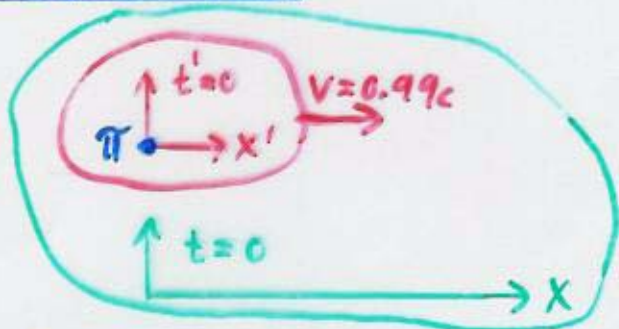 t'=0
V=0.99c
π
x'
t=0
x